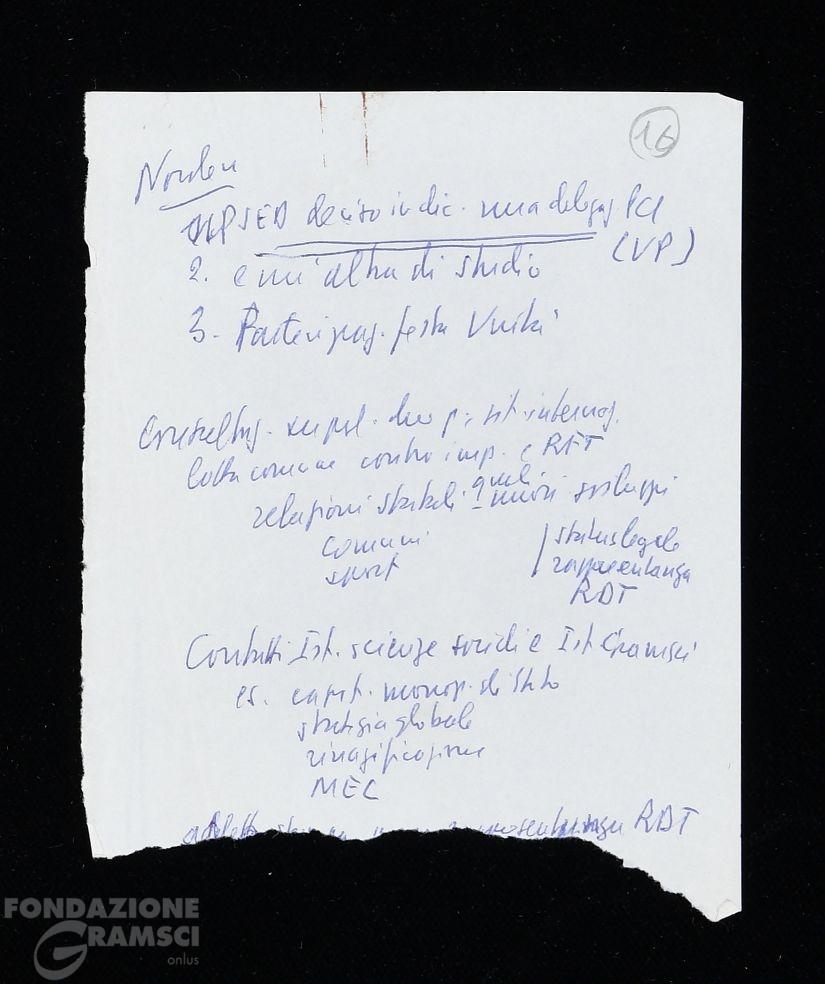 16
Norden
SED deciso indic. una delegaz PCI
(VP)
2. e un'altra di studio
3. Partecipaz. festa Unità
Consultaz. due p. sit. internaz.
lotta comune contro imp. e RFT
relazioni statali quali nuovi sviluppi
comuni
sport
status legale
rappresentanza
RDT
Contatti Ist. scienze sociali e Ist Gramsci
es. capit. monop. di Stato
strategia globale
rinazificazione
MEC
addetto stampa rappresentanza RDT
FONDAZIONE
GRAMSCI
onlus